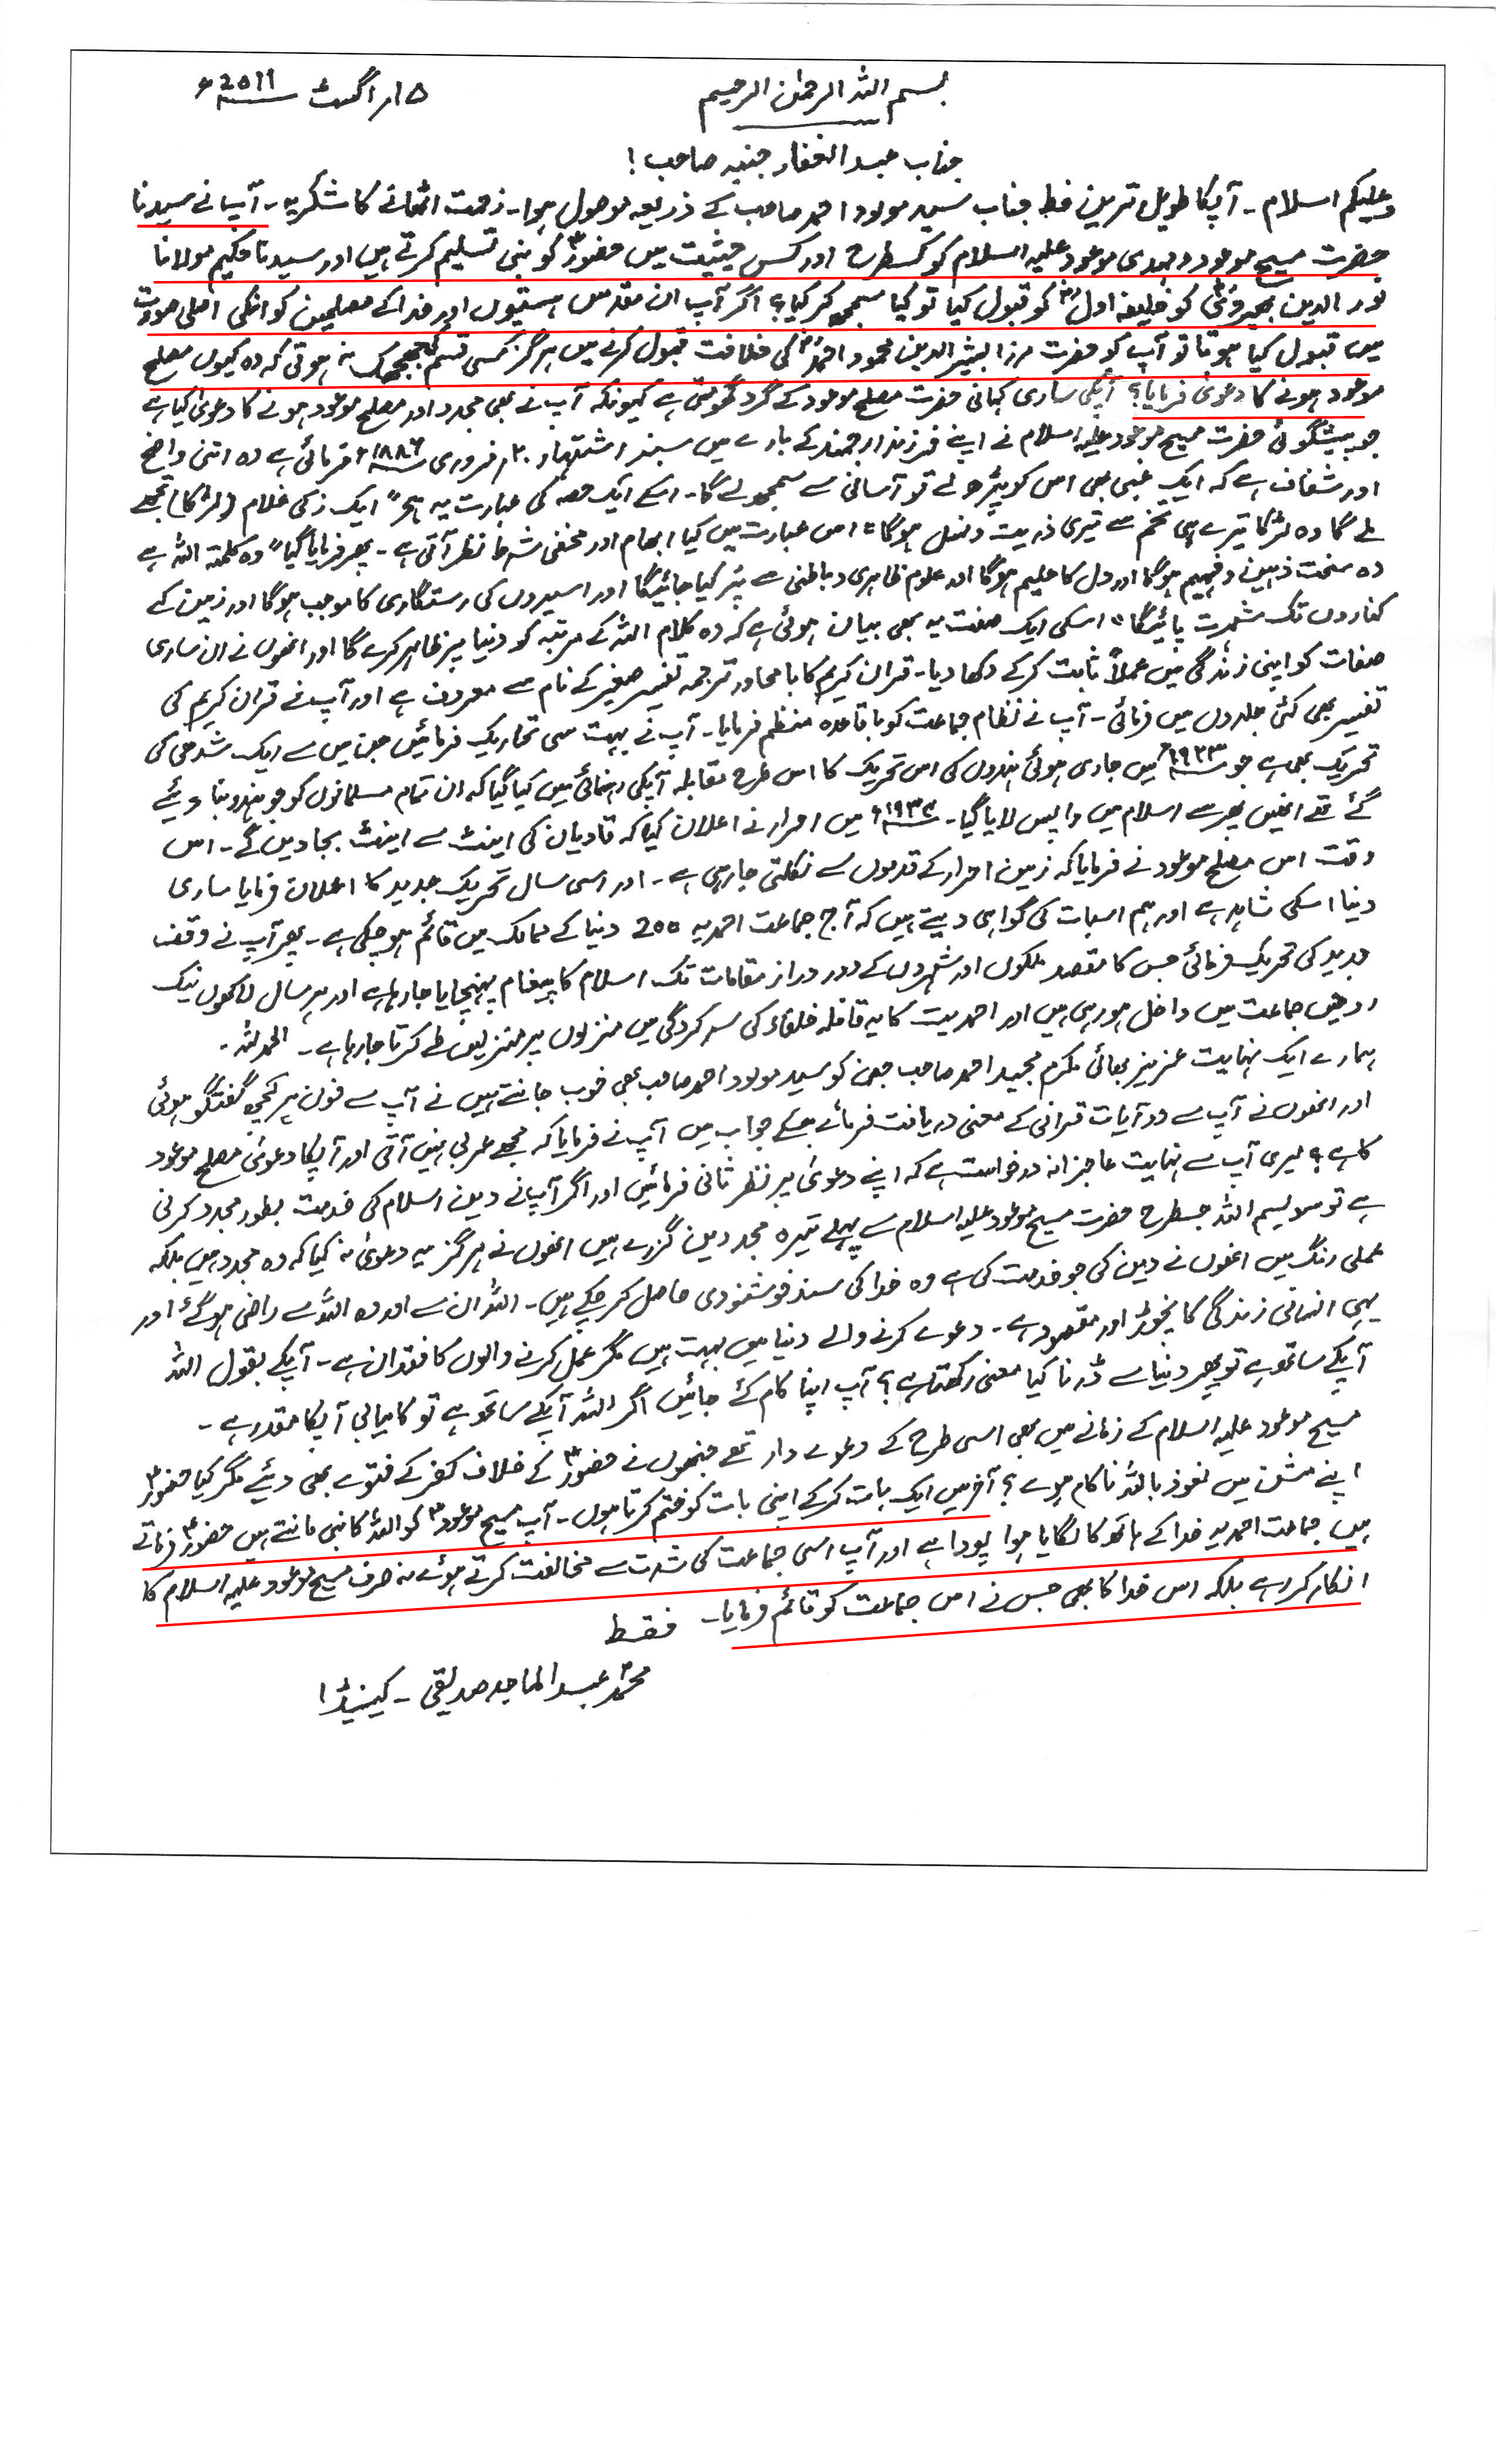 بسم اللہ الرحمٰن الرحیم
۱۵؍ اگست 2011ء
جناب عبد الغفار جنبہ صاحب !
وعلیکم اسلام ۔ آپکا طویل ترین خط جناب سید مولود احمد صاحب کے ذریعہ موصول ہوا۔ زحمت اٹھانے کا شکریہ۔ آپ نے سیدنا
حضرت مسیح موعود و مہدی موعود علیہ اسلام کو کسطرح اور کس حیثیت میں حضورؑ کو نبی تسلیم کرتے ہیں اور سیدنا حکیم مولانا
نور الدین بھیرویؓ کو خلیفہ اولؓ کو قبول کیا تو کیا سمجھ کر کیا؟ اگر آپ ان مقدس ہستیوں اور خدا کے مصلحین کو انکی اصلی صورت
میں قبول کیا ہوتا تو آپ کو حضرت مرزا بشیر الدین محمود احمدؓ کی خلافت قبول کرنے میں ہرگز کسی قسم کی جھجھک نہ ہوتی کہ وہ کیوں مصلح
موعود ہونے کا دعویٰ فرمایا؟ آپکی ساری کہانی حضرت مصلح موعود کے گرد گھومتی ہے کیونکہ آپ نے بھی مجدد اور مصلح موعود ہونے کا دعویٰ کیا ہے
جو پیشگوئی حضرت مسیح موعود علیہ اسلام نے اپنے فرزند ارجمند کے بارے میں سبز اشتہار ۲۰؍ فروری ۱۸۸۶ء فرمائی ہے وہ اتنی واضح
اور شفاف ہے کہ ایک غبی بھی اس کو پڑھ لے تو آسانی سے سمجھ لے گا۔ اسکے ایک حصہ کی عبارت یہ ہے "ایک زکی غلام (لڑکا) تجھے
ملے گا وہ لڑکا تیرے ہی تخم سے تیری ذریت و نسل ہوگا" اس عبارت میں کیا ابہام اور مخفی شہ نظر آتی ہے۔ پھر فرمایا گیا "وہ کلمتہ اللہ ہے
وہ سخت ذہین و فہیم ہوگا اور دل کا حلیم ہوگا اور علوم ظاہری و باطنی سے پُر کیا جائیگا اور اسیروں کی رستگاری کا موجب ہوگا اور زمین کے
کناروں تک شہرت پائیگا" اسکی ایک صفت یہ بھی بیان ہوئی ہے کہ وہ کلام اللہ کے مرتبہ کو دنیا پر ظاہر کرے گا اور انھوں نے ان ساری
صفات کو اپنی زندگی میں عملاً ثابت کر کے دکھا دیا۔ قران کریم کا بامحاورہ ترجمہ تفسیر صغیر کے نام سے معروف ہے اور آپ نے قران کریم کی
تفسیر بھی کئی جلدوں میں فرمائی۔ آپ نے نظام جماعت کو باقاعدہ منظم فرمایا۔ آپ نے بہت سی تحاریک فرمائیں جن میں سے ایک شدھی کی
تحریک بھی ہے جو ۱۹۲۳ء میں جاری ہوئی ہندوں کی اس تحریک کا اس طرح مقابلہ آپکی رہنمائی میں کیا گیا کہ ان تمام مسلمانوں کو جو ہندو بنا دیئے
گئے تھے انھیں پھر سے اسلام میں واپس لایا گیا۔ ۱۹۳۴ء میں احرار نے اعلان کیا کہ قادیان کی اینٹ سے اینٹ بجا دیں گے۔ اس
وقت اس مصلح موعود نے فرمایا کہ زمین احرار کے قدموں سے نکلتی جا رہی ہے۔ اور اسی سال تحریک جدید کا اعلان فرمایا ساری
دنیا اسکی شاہد ہے اور ہم اسبات کی گواہی دیتے ہیں کہ آج جماعت احمدیہ 200 دنیا کے ممالک میں قائم ہو چکی ہے۔ پھر آپ نے وقف
جدید کی تحریک فرمائی جس کا مقصد ملکوں اور شہروں کے دور دراز مقامات تک اسلام کا پیغام پہنچایا جا رہا ہے اور ہر سال لاکھوں نیک
روحیں جماعت میں داخل ہو رہی ہیں اور احمدیت کا یہ قافلہ خلفاء کی سرکردگی میں منزلوں پر منزلیں طے کرتا جا رہا ہے۔ الحمد للہ۔
ہمارے ایک نہایت عزیز بھائی مکرم مجید احمد صاحب جن کو سید مولود احمد صاحب بھی خوب جانتے ہیں نے آپ سے فون پر کچھ گفتگو ہوئی
اور انھوں نے آپ سے دو آیات قرانی کے معنی دریافت فرمائے جسکے جواب میں آپ نے فرمایا کہ مجھے عربی نہیں آتی اور آپکا دعویٰ مصلح موعود
کا ہے؟ میری آپ سے نہایت عاجزانہ درخواست ہے کہ اپنے دعویٰ پر نظر ثانی فرمائیں اور اگر آپ نے دین اسلام کی خدمت بطور مجدد کرنی
ہے تو سو بسم اللہ جسطرح حضرت مسیح موعود علیہ اسلام سے پہلے تیرہ مجددین گزرے ہیں انھوں نے ہرگز یہ دعویٰ نہ کیا کہ وہ مجدد ہیں بلکہ
عملی رنگ میں انھوں نے دین کی جو خدمت کی ہے وہ خدا کی سند خوشنودی حاصل کر چکے ہیں۔ اللہ ان سے اور وہ اللہ سے راضی ہو گئے اور
یہی انسانی زندگی کا نچوڑ اور مقصود ہے۔ دعوے کرنے والے دنیا میں بہت ہیں مگر عمل کرنے والوں کا فقدان ہے۔ آپکے بقول اللہ
آپکے ساتھ ہے تو پھر دنیا سے ڈرنا کیا معنی رکھتا ہے؟ آپ اپنا کام کئے جائیں اگر اللہ آپکے ساتھ ہے تو کامیابی آپکا مقدر ہے۔
مسیح موعود علیہ اسلام کے زمانے میں بھی اسی طرح کے دعوے دار تھے جنھوں نے حضورؑ کے خلاف کفر کے فتوے بھی دیئے مگر کیا حضورؑ
اپنے مشن میں نعوذ باللہ ناکام ہوے؟ آخر میں ایک بات کر کے اپنی بات کو ختم کرتا ہوں۔ آپ مسیح موعودؑ کو اللہ کا نبی مانتے ہیں حضورؑ فرماتے
ہیں جماعت احمدیہ خدا کے ہاتھ کا لگایا ہوا پودا ہے اور آپ اسی جماعت کی شدت سے مخالفت کرتے ہوئے نہ صرف مسیح موعود علیہ اسلام کا
انکار کر رہے بلکہ اس خدا کا بھی جس نے اس جماعت کو قائم فرمایا۔ فقط
محمد عبد الماجد صدیقی ۔ کینیڈا